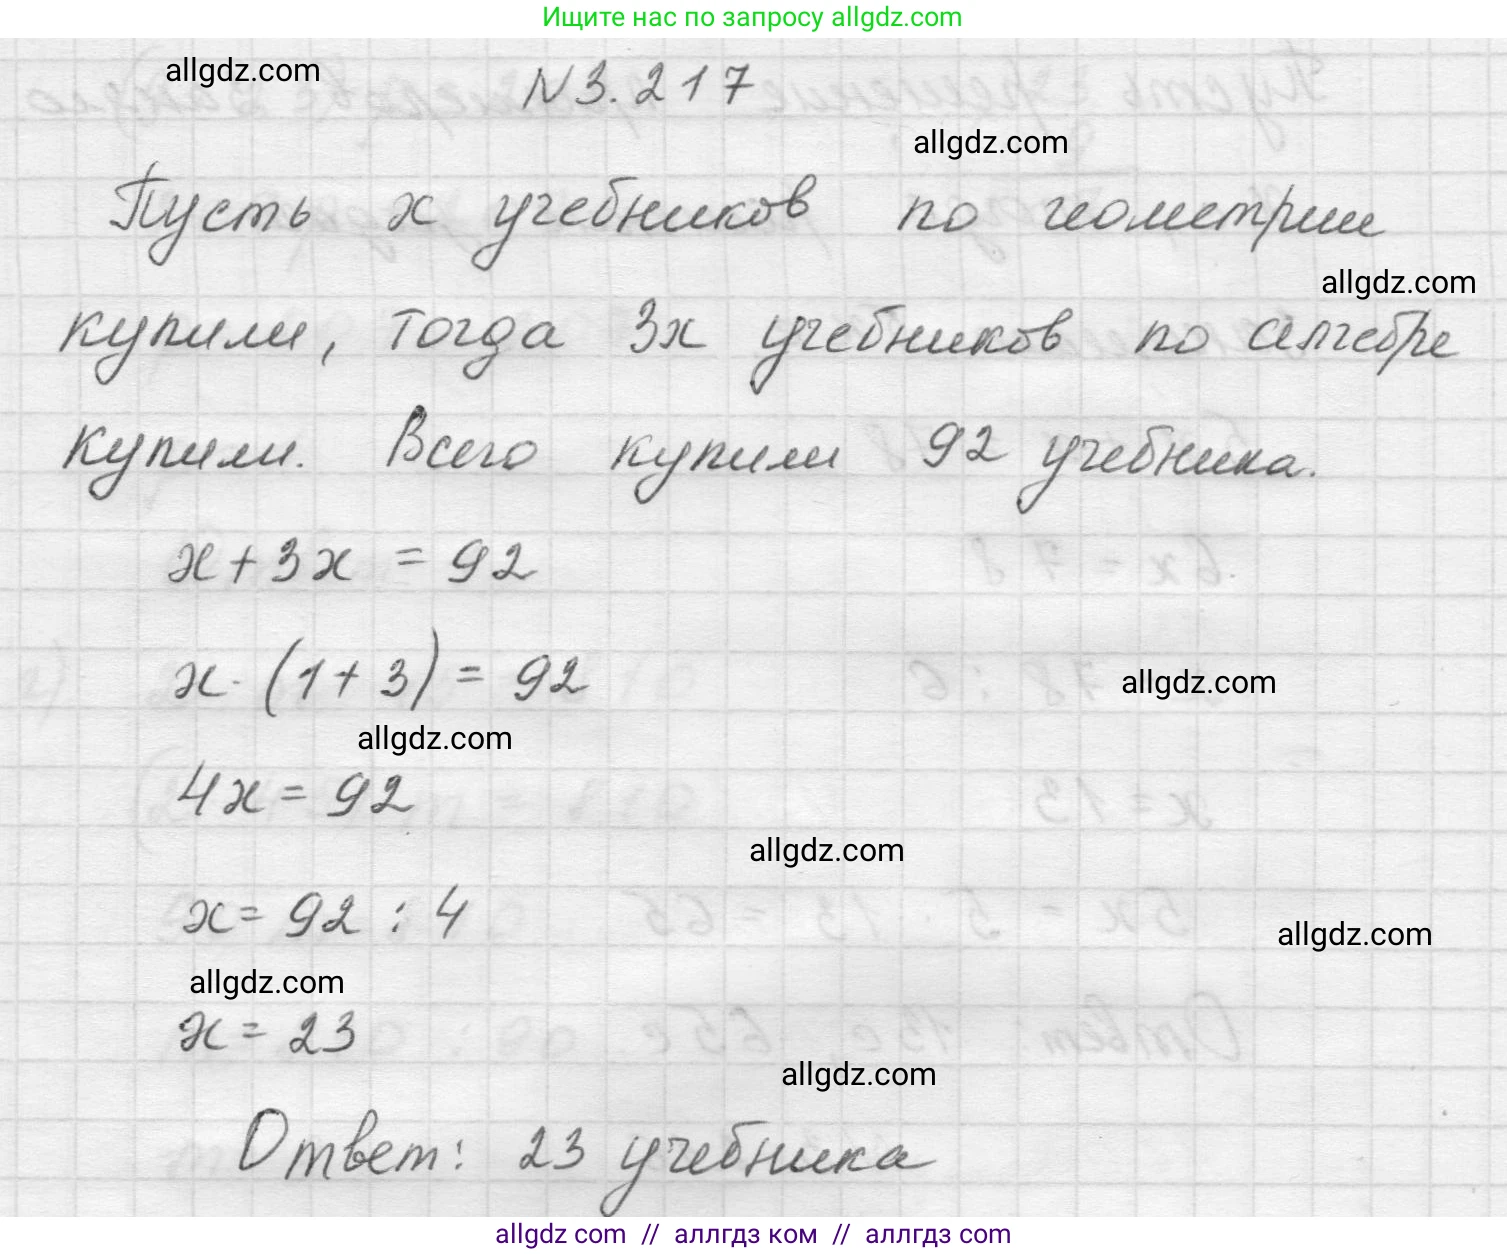 Ищите нас по запросу allgdz.com
allgdz.com
N3.217
allgdz.com
Пусть x учебников по геометрии
allgdz.com
купили, тогда 3x учебников по алгебре
купили. Всего купили 92 учебника.
x+3x = 92
x·(1+3) = 92
allgdz.com
allgdz.com
4x = 92
allgdz.com
x = 92 : 4
allgdz.com
allgdz.com
x = 23
allgdz.com
Ответ: 23 учебника
allgdz.com // аллгдз ком // аллгдз.com